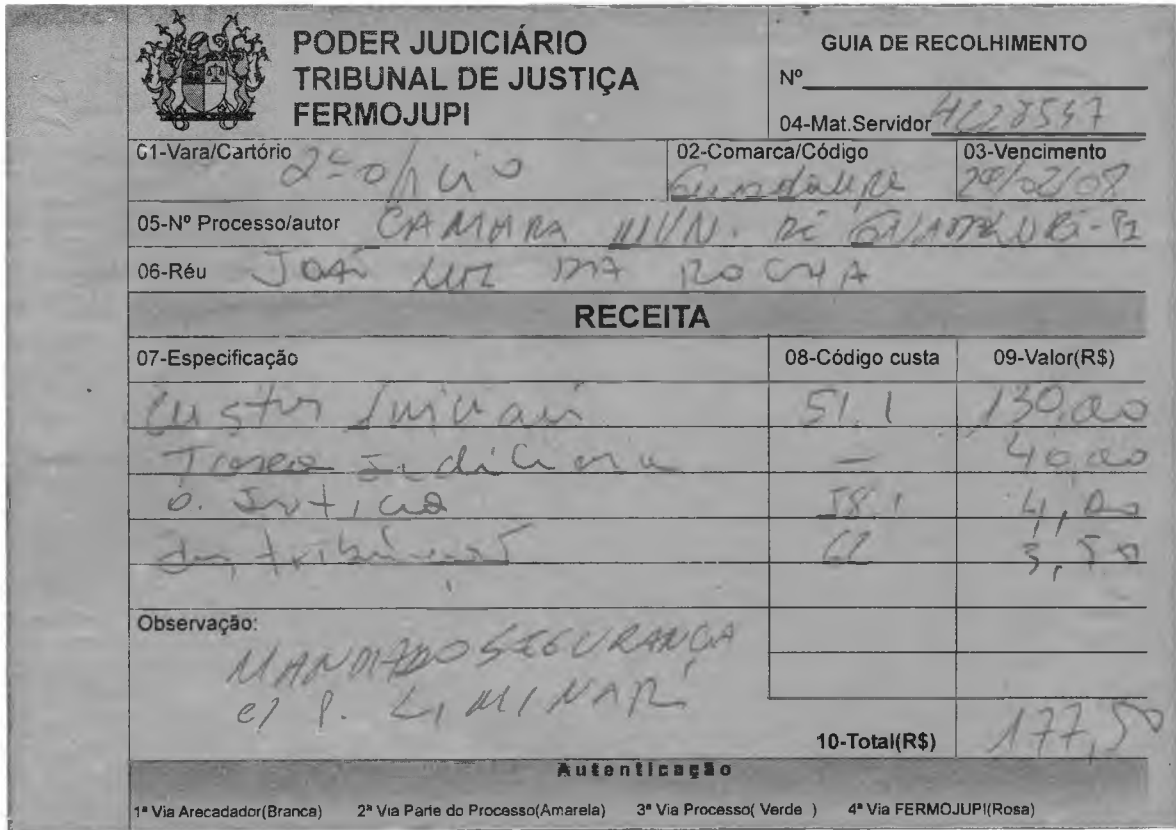 PODER JUDICIÁRIO
TRIBUNAL DE JUSTIÇA
FERMOJUPI
GUIA DE RECOLHIMENTO
Nº
04-Mat.Servidor
01-Vara/Cartório 2º ofício
02-Comarca/Código Guadalupe
03-Vencimento
05-Nº Processo/autor CAMARA MUN. DE GUADALUPE-PI
06-Réu JOAO LUIZ DA ROCHA
RECEITA
07-Especificação 08-Código custa 09-Valor(R$)
Custas Iniciais 51.1 130,00
Taxa Judiciaria — 40,00
O. Justiça 58.1 4,00
distribuição 62 3,50
Observação:
MANDADO SEGURANÇA
c/ P. LIMINAR
10-Total(R$) 177,50
Autenticação
1ª Via Arecadador(Branca) 2ª Via Parte do Processo(Amarela) 3ª Via Processo( Verde ) 4ª Via FERMOJUPI(Rosa)